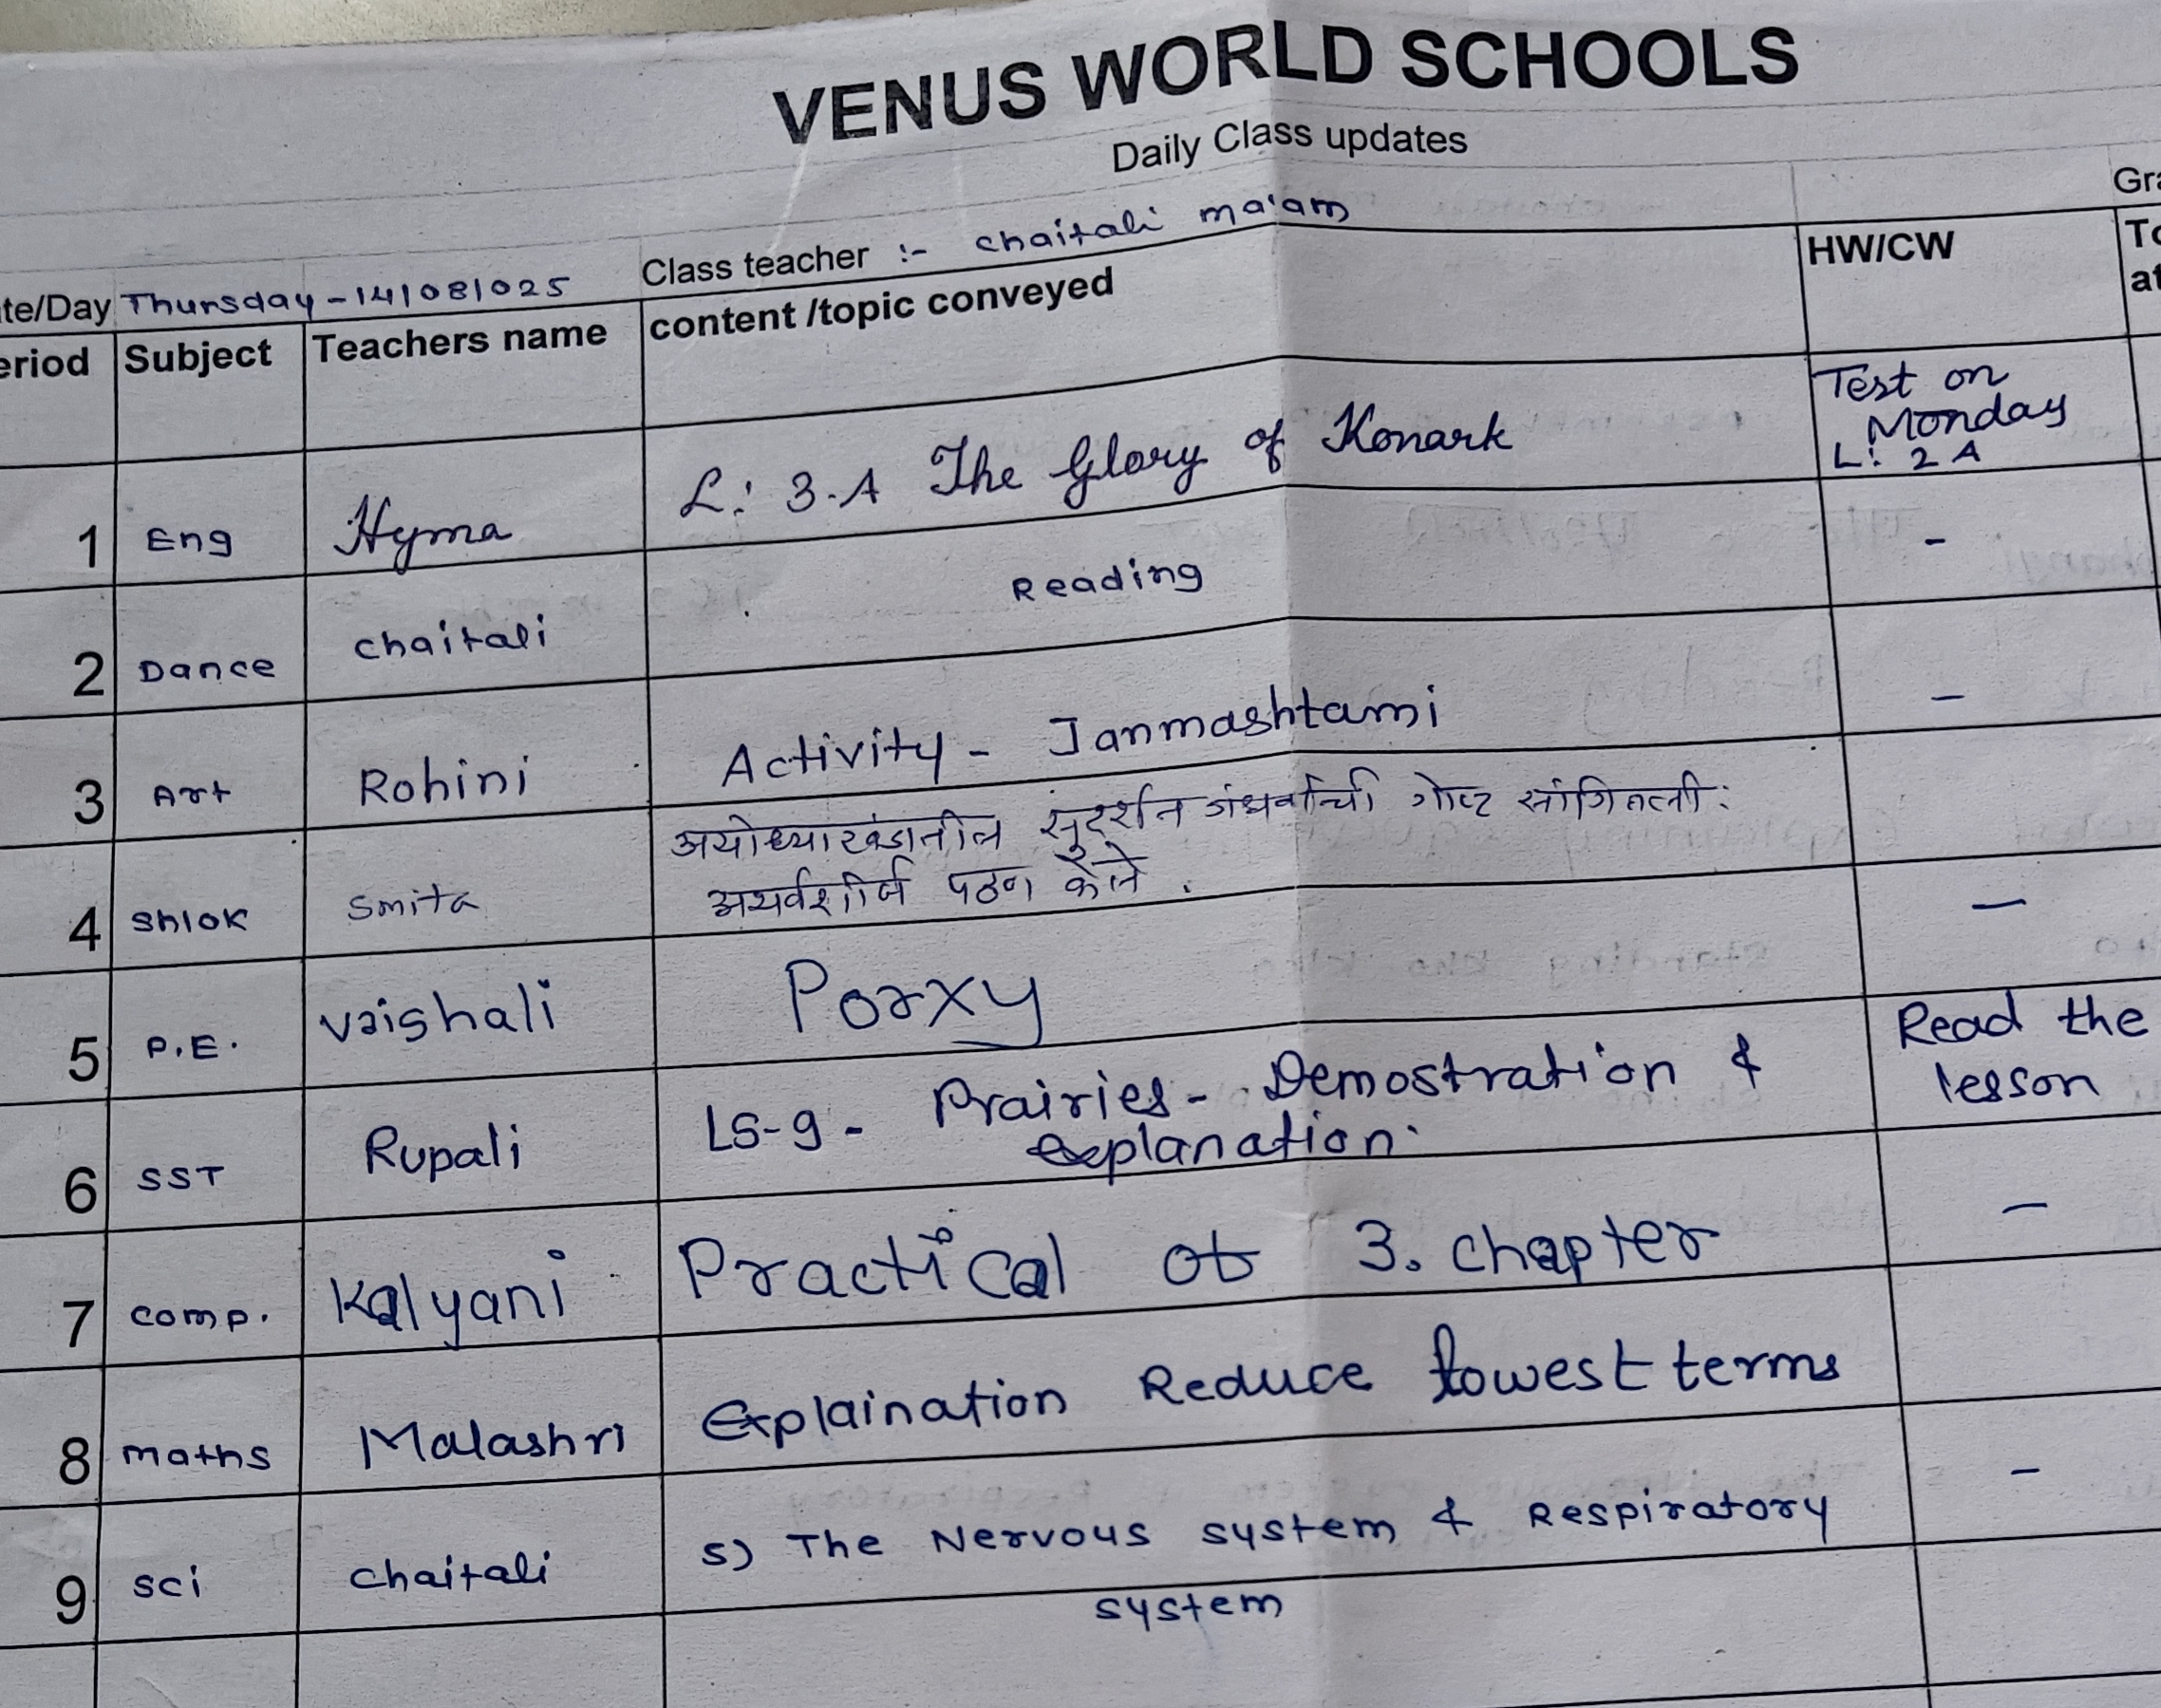 VENUS WORLD SCHOOLS
Daily Class updates
Gra
te/Day Thursday - 14/08/025 Class teacher :- chaitali ma'am
eriod Subject Teachers name content /topic conveyed HW/CW To
at
1 Eng Hyma L: 3-A The Glory of Konark Test on
Monday
L: 2 A
2 Dance chaitali Reading -
3 Art Rohini Activity - Janmashtami -
4 Shlok Smita अयोध्याखंडातील सुदर्शन गंधर्वाची गोष्ट सांगितली:
अथर्वशीर्ष पठण केले .
5 P.E. Vaishali Porxy —
6 SST Rupali LS-9 - Prairies - Demostration & Read the
explanation. lesson
7 comp. Kalyani Practical of 3. chapter -
8 maths Malashri Explaination Reduce lowest terms
9 sci chaitali 5) The Nervous system & Respiratory -
system